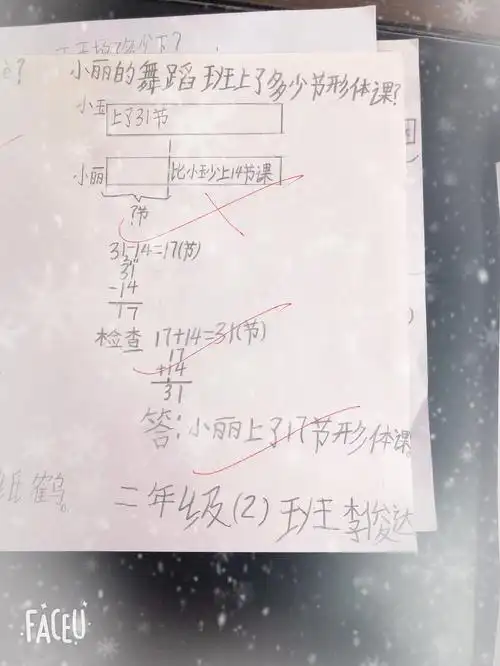 小丽的舞蹈班上了多少节形体课?
小玉 上了31节
小丽 比小玉少上14节课
?节
31-14=17(节)
31
-14
17
检查 17+14=31(节)
17
+14
31
答:小丽上了17节形体课。
纸鹤。
二年级(2)班李俊达
FACEU